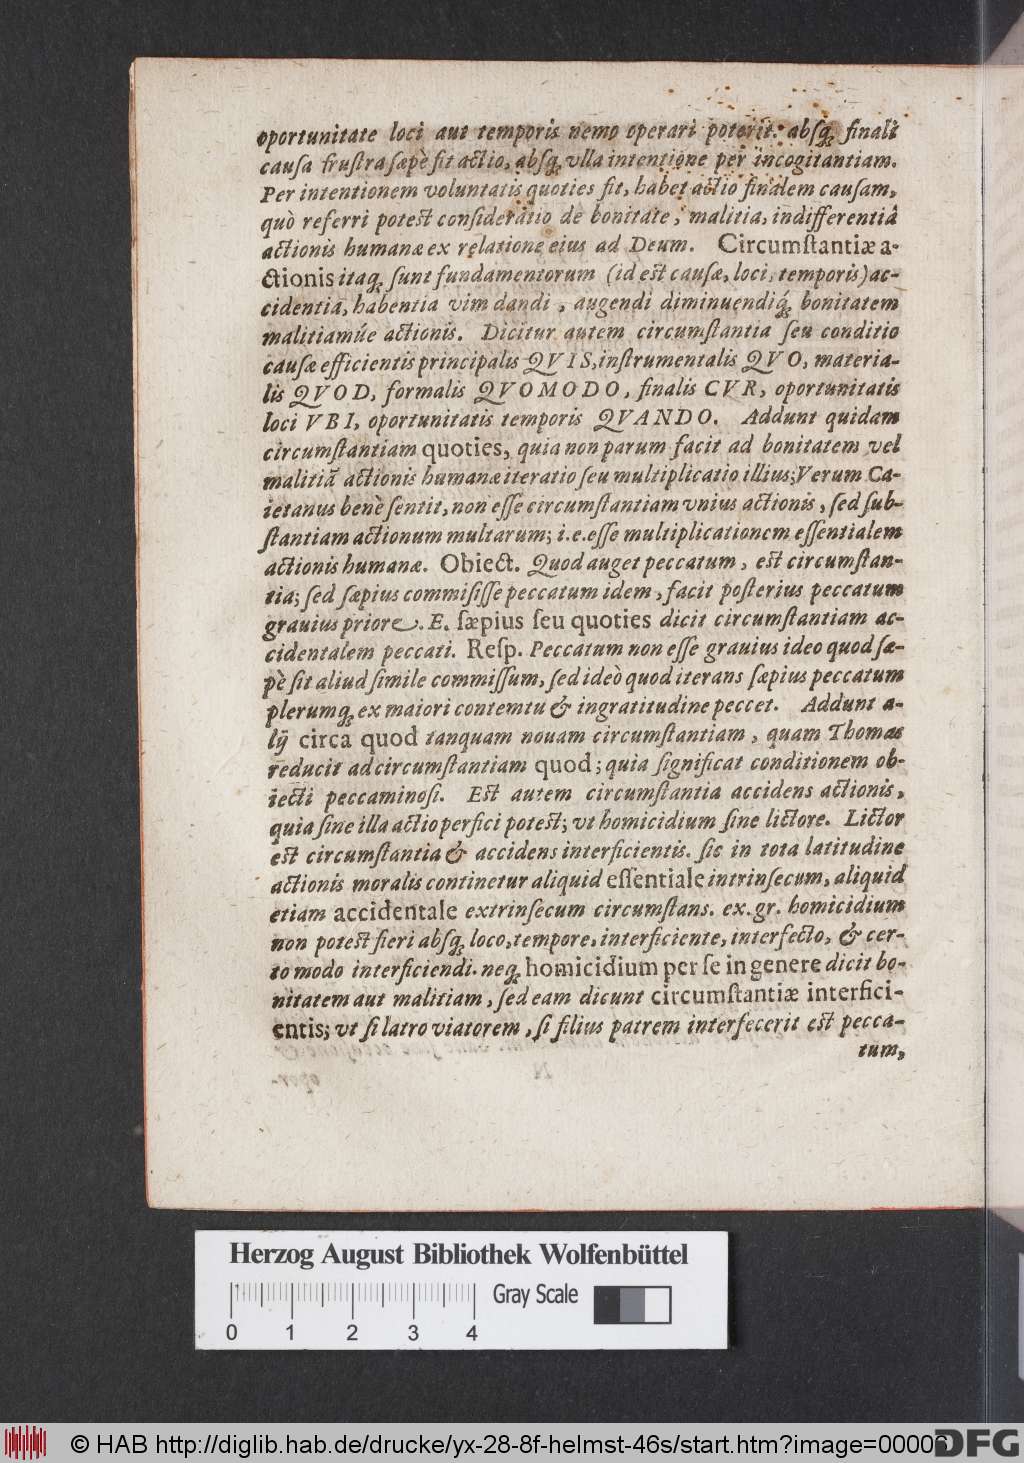 oportunitate loci aut temporis nemo operari poterit. absq; finali
causa frustra sæpè fit actio, absq; vlla intentione per incogitantiam.
Per intentionem voluntatis quoties fit, habet actio finalem causam,
quò referri potest consideratio de bonitate, malitia, indifferentiâ
actionis humanæ ex relatione eius ad Deum. Circumstantiæ a-
ctionis itaq; sunt fundamentorum (id est causæ, loci, temporis) ac-
cidentia, habentia vim dandi, augendi diminuendiq́; bonitatem
malitiamúe actionis. Dicitur autem circumstantia seu conditio
causæ efficientis principalis QVIS, instrumentalis QVO, materia-
lis QVOD, formalis QVOMODO, finalis CVR, oportunitatis
loci VBI, oportunitatis temporis QVANDO. Addunt quidam
circumstantiam quoties, quia non parum facit ad bonitatem vel
malitiã actionis humanæ iteratio seu multiplicatio illius; Verum Ca-
ietanus benè sentit, non esse circumstantiam vnius actionis, sed sub-
stantiam actionum multarum; i.e. esse multiplicationem essentialem
actionis humanæ. Obiect. Quod auget peccatum, est circumstan-
tia; sed sæpius commisisse peccatum idem, facit posterius peccatum
grauius priore. E. sæpius seu quoties dicit circumstantiam ac-
cidentalem peccati. Resp. Peccatum non esse grauius ideo quod sæ-
pè sit aliud simile commissum, sed ideò quod iterans sæpius peccatum
plerumq; ex maiori contemtu & ingratitudine peccet. Addunt a-
lij circa quod tanquam nouam circumstantiam, quam Thomas
reducit ad circumstantiam quod; quia significat conditionem ob-
iecti peccaminosi. Est autem circumstantia accidens actionis,
quia sine illa actio perfici potest; vt homicidium sine lictore. Lictor
est circumstantia & accidens interficientis. sic in tota latitudine
actionis moralis continetur aliquid essentiale intrinsecum, aliquid
etiam accidentale extrinsecum circumstans. ex. gr. homicidium
non potest fieri absq; loco, tempore, interficiente, interfecto, & cer-
to modo interficiendi. neq; homicidium per se in genere dicit bo-
nitatem aut malitiam, sed eam dicunt circumstantiæ interfici-
entis; vt si latro viatorem, si filius patrem interfecerit est pecca-
tum,
Herzog August Bibliothek Wolfenbüttel
0 1 2 3 4 Gray Scale
© HAB http://diglib.hab.de/drucke/yx-28-8f-helmst-46s/start.htm?image=00006
DFG